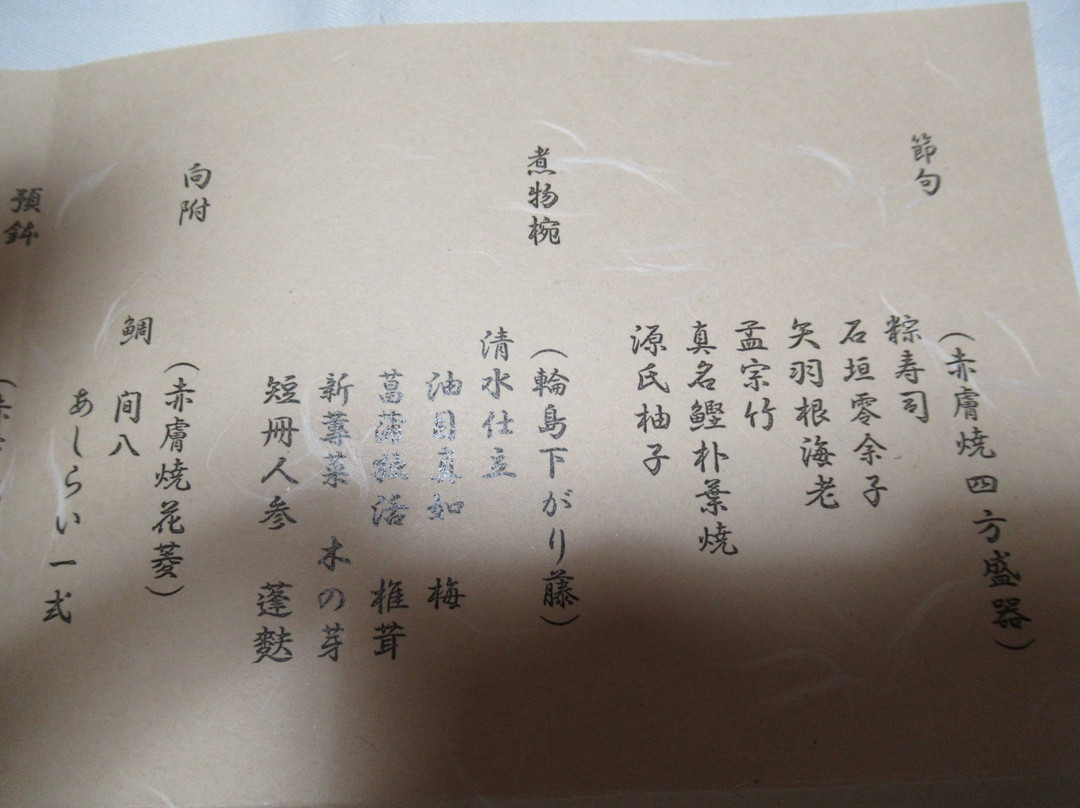 節句
(赤膚焼四方盛器)
粽寿司
石垣零余子
矢羽根海老
孟宗竹
真名鰹朴葉焼
源氏柚子
煮物椀
(輪島下がり藤)
清水仕立
油目真如 梅
菖蒲独活 椎茸
新蓴菜 木の芽
短冊人参 蓬麩
向附
(赤膚焼花菱)
鯛 間八
あしらい一式
預鉢